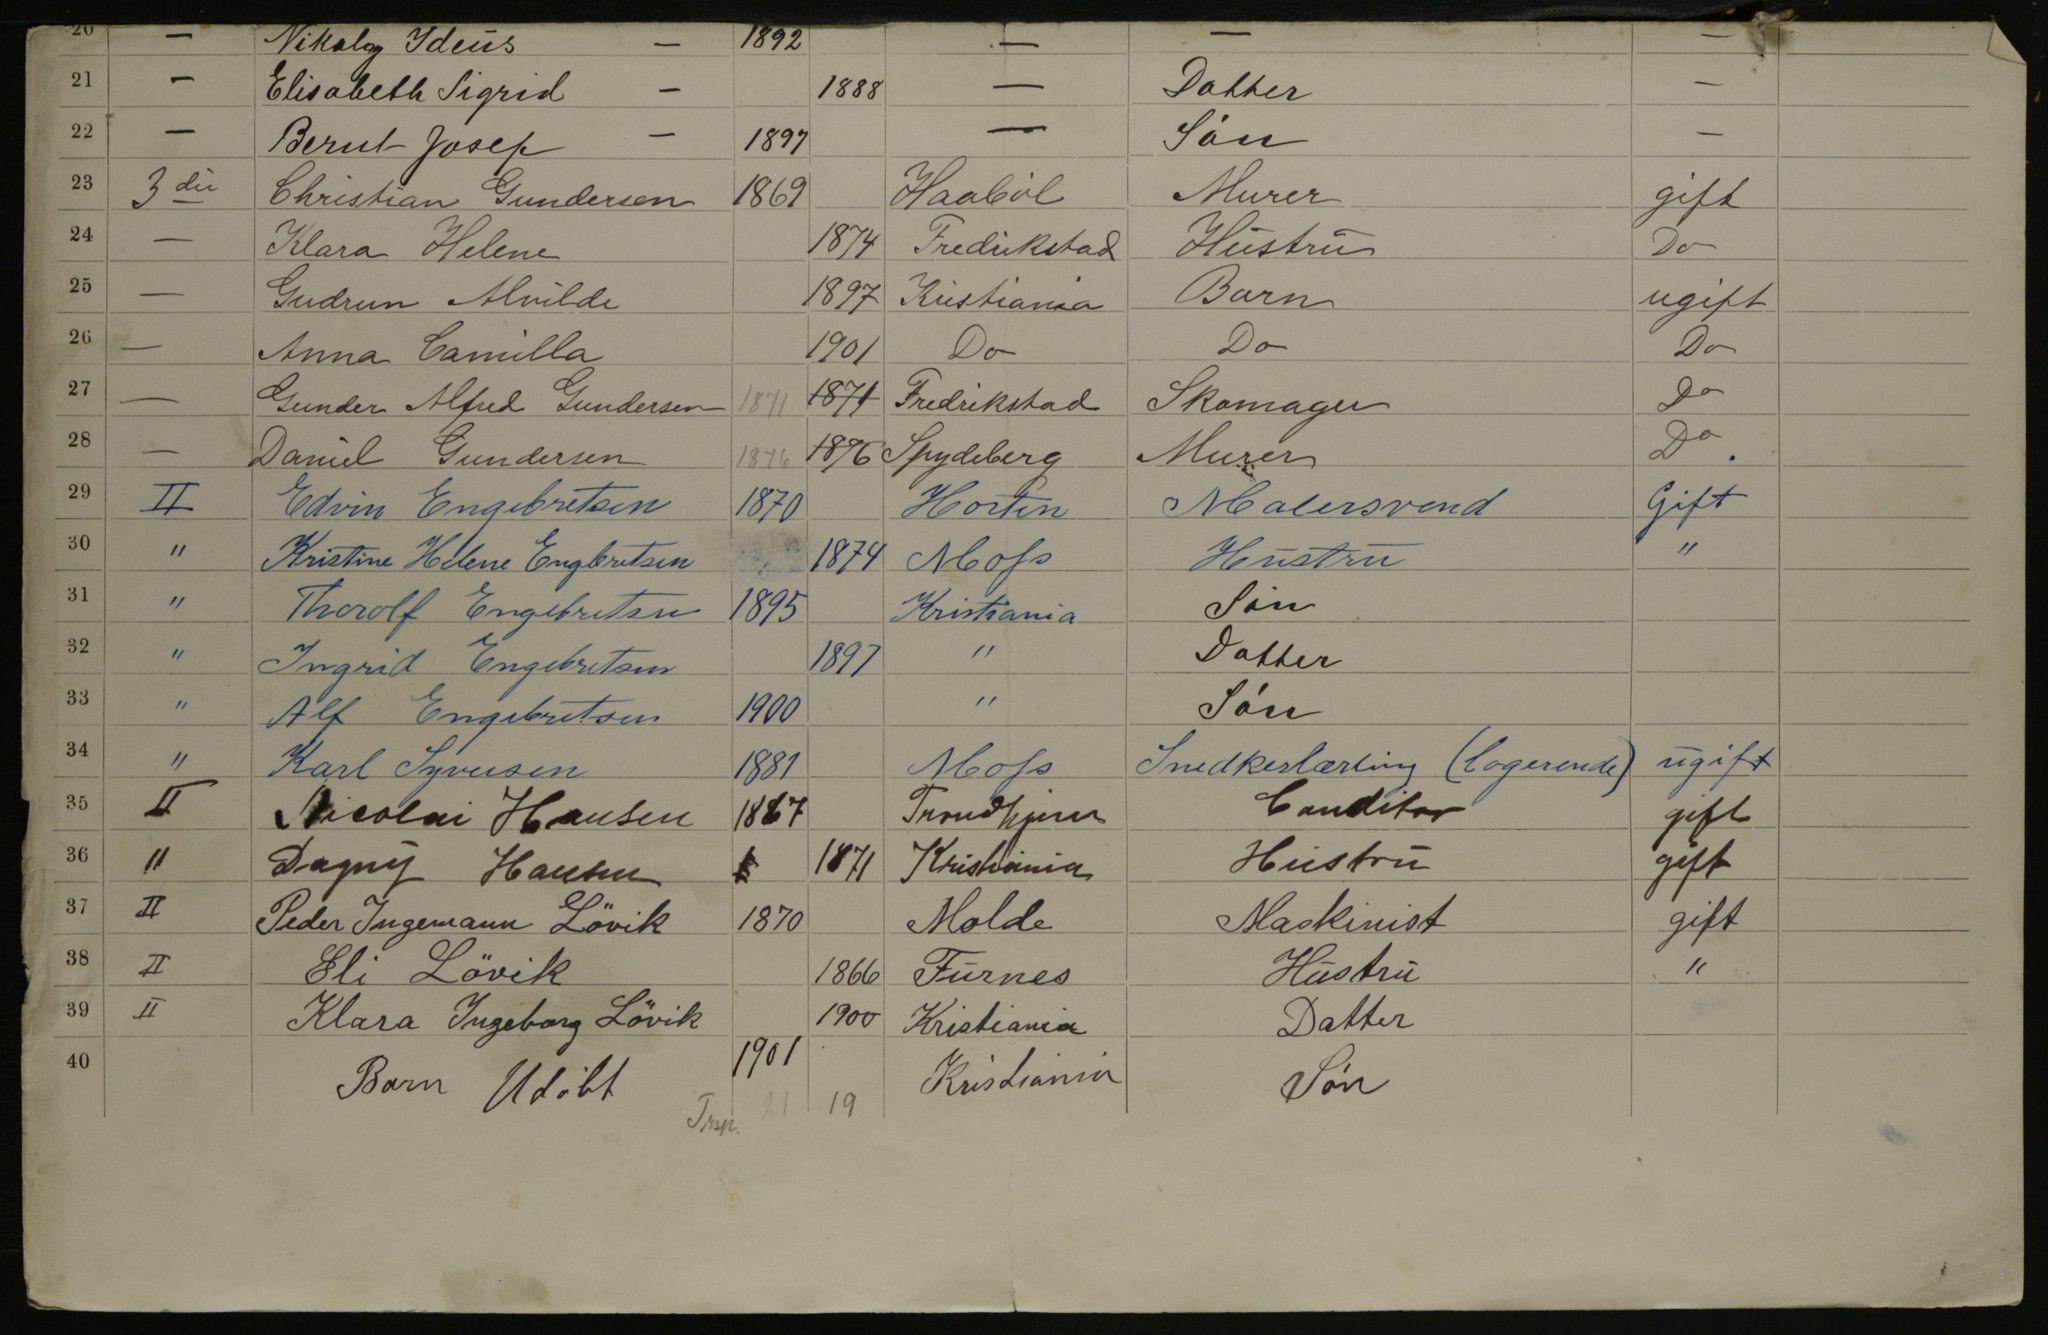 20 — Nikolay Ideüs — 1892 — — —
21 — Elisabeth Sigrid — 1888 — Datter —
22 — Bernt Josep — 1897 — Sön —
23 3die Christian Gundersen 1869 Haaböl Murer gift
24 — Klara Helene 1874 Fredrikstad Hüstrü Do
25 — Gudrun Alvilde 1897 Kristiania Barn ugift
26 — Anna Camilla 1901 Do Do Do
27 — Gunder Alfred Gundersen 1871 1871 Fredrikstad Skomager Do
28 — Daniel Gundersen 1876 1876 Spydeberg Murer Do.
29 II Edvin Engebretsen 1870 Horten Malersvend Gift
30 " Kristine Helene Engbretsen 1874 Moss Hüstrü "
31 " Thorolf Engebretsen 1895 Kristiania Sön
32 " Ingrid Engebretsen 1897 " Datter
33 " Alf Engebretsen 1900 " Sön
34 " Karl Syversen 1881 Moss Snedkerlærling (logerende) ügift
35 II Nicolai Hansen 1867 Trondhjem Conditor gift
36 " Dagny Hansen 1871 Kristiania Hüstrü gift
37 II Peder Ingemann Lövik 1870 Molde Maskinist gift
38 II Eli Lövik 1866 Fürnes Hüstrü "
39 II Klara Ingeborg Lövik 1900 Kristiania Datter
40 Barn Udöbt 1901 Kristiania Sön
Trsp. 21 19